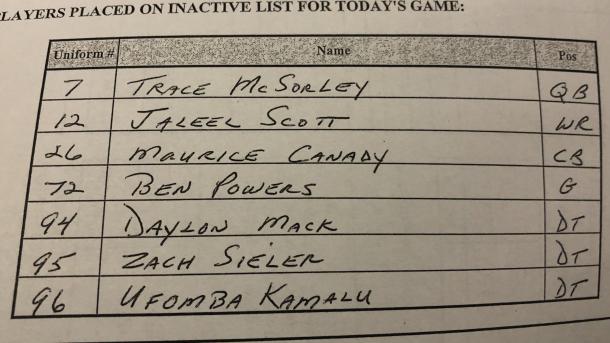 PLAYERS PLACED ON INACTIVE LIST FOR TODAY'S GAME:
Uniform # Name Pos
7 TRACE McSORLEY QB
12 JALEEL SCOTT WR
26 MAURICE CANADY CB
72 BEN POWERS G
94 DAYLON MACK DT
95 ZACH SIELER DT
96 UFOMBA KAMALU DT